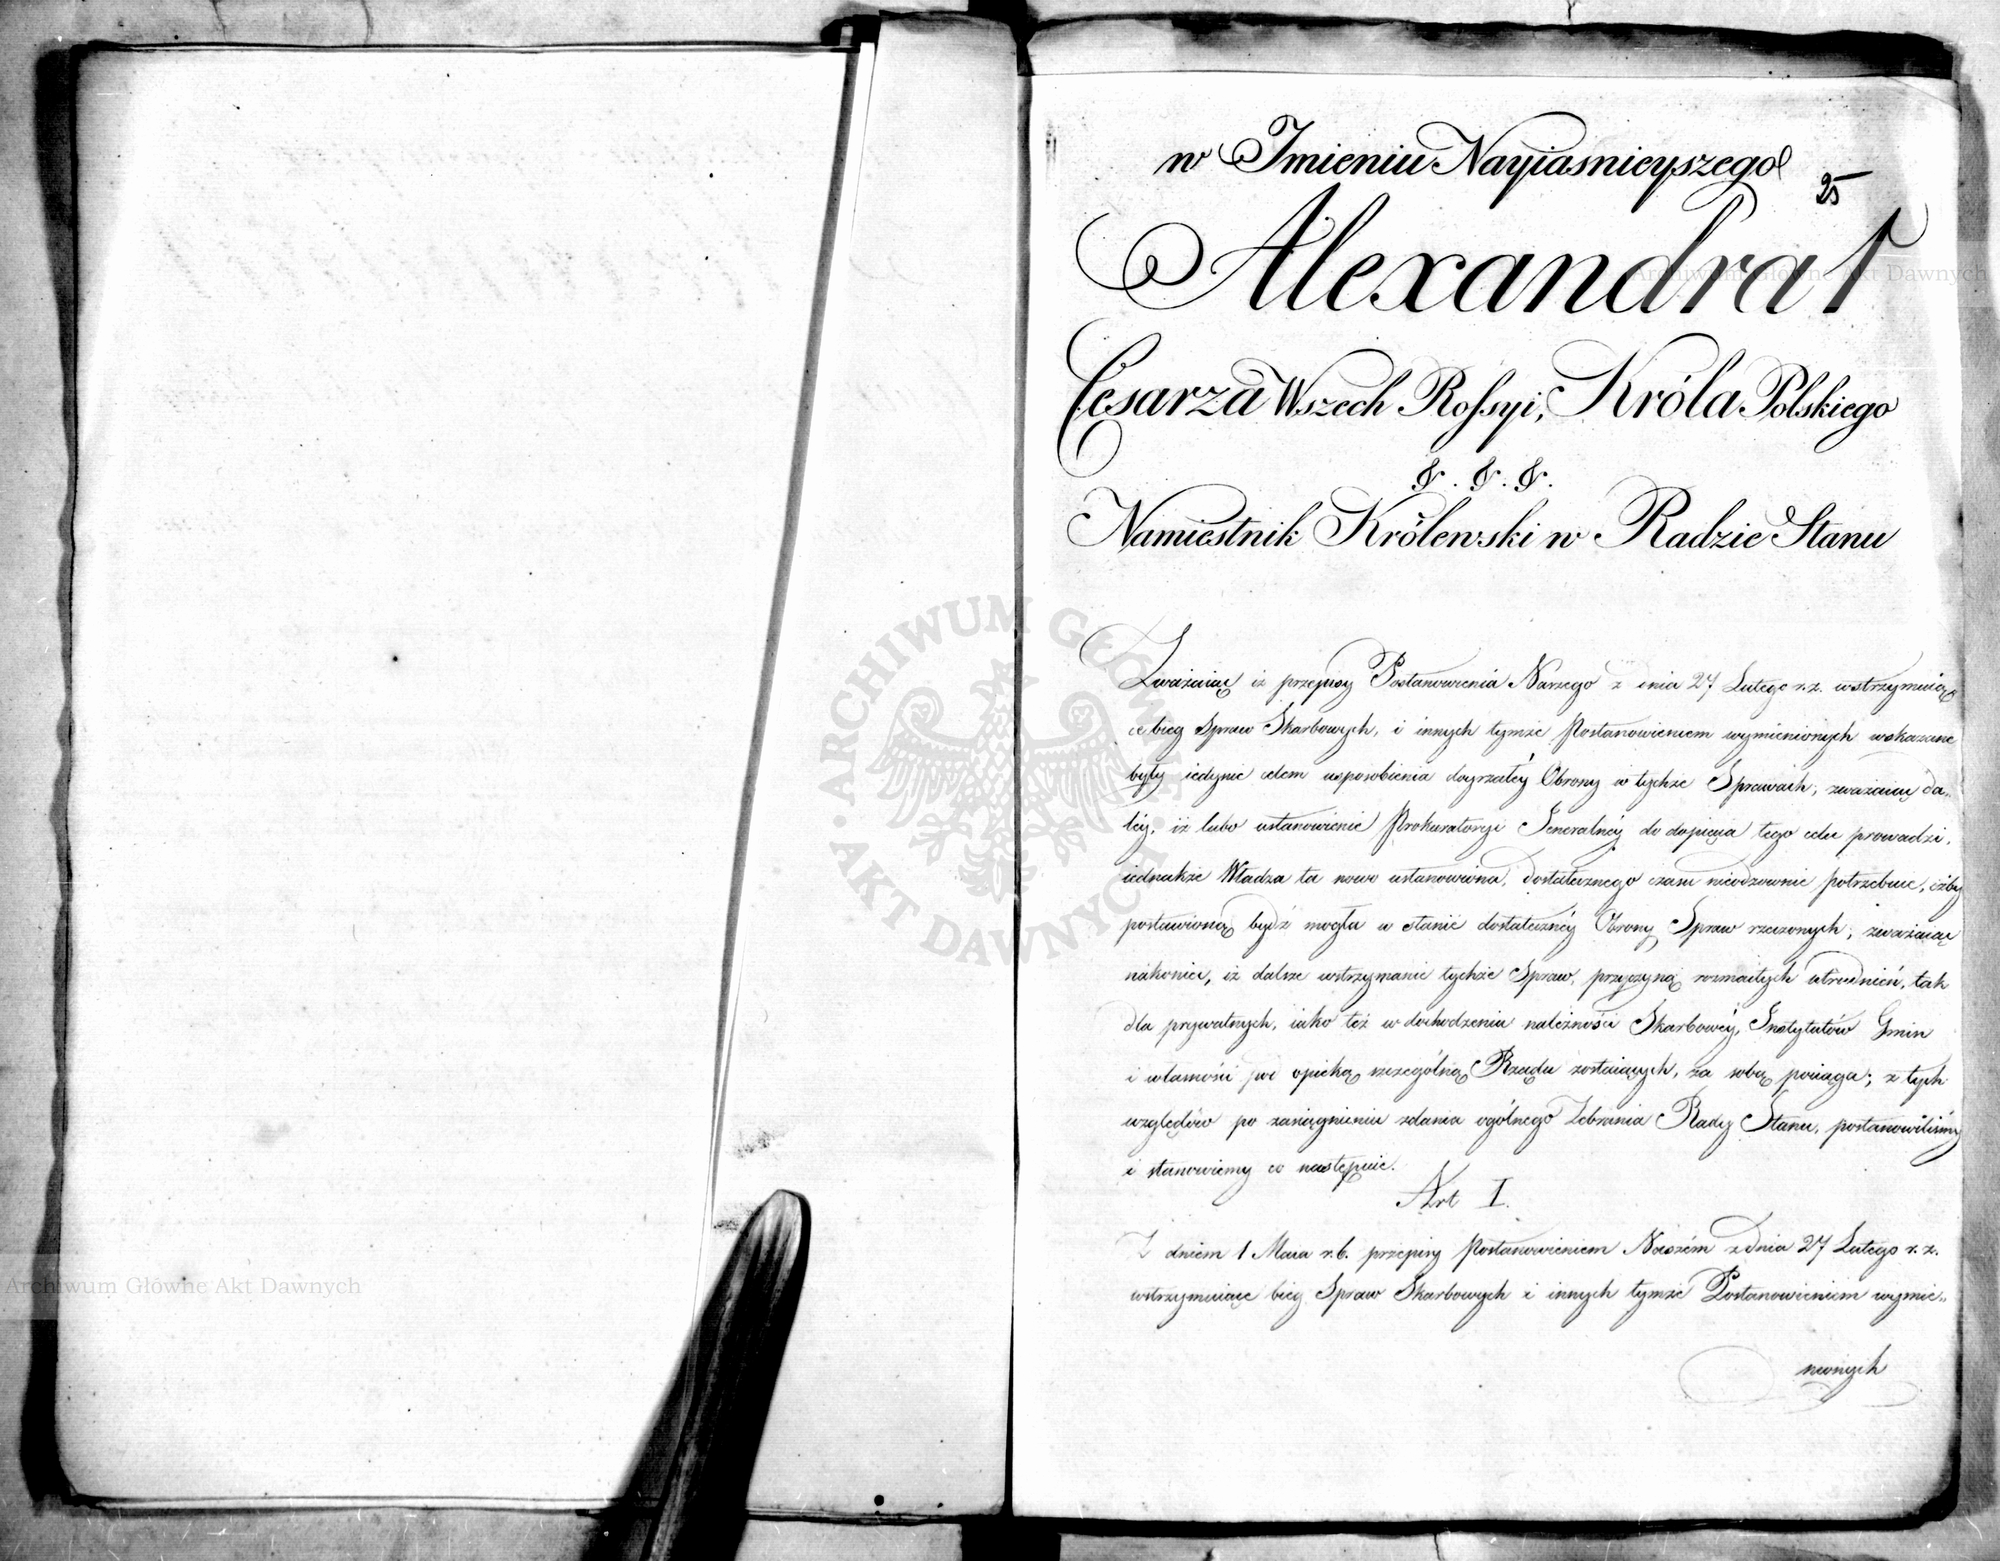 w Imieniu Nayiasnieyszego
25
Alexandra I
Cesarza Wszech Rossyi, Króla Polskiego
&. &. &.
Namiestnik Królewski w Radzie Stanu
Zważaiąc iż przepisy Postanowienia Naszego z dnia 27 Lutego r. z. wstrzymuią
ce bieg Spraw Skarbowych, i innych tymże Postanowieniem wymienionych wskazane
były iedynie celem usposobienia doyrzałéy Obrony w tychże Sprawach; zważaiąc da„
léy, iż lubo ustanowienie Prokuratoryi Generalnéy do dopięcia tego celu prowadzi,
iednakże Władza ta nowo ustanowiona, dostatecznego czasu nieodzownie potrzebuie, ażby
postawioną bydź mogła w stanie dostatecznéy Obrony Spraw rzeczonych; zważaiąc
nakoniec, iż dalsze wstrzymanie tychże Spraw, przyczyną rozmaitych utrudnień, tak
dla prywatnych, iako też w dochodzeniu należności Skarbowéy, Instytutów Gmin
i własności pod opieką szczególną Rządu zostaiących, za sobą pociąga; z tych
względów po zasiągnieniu zdania ogólnego Zebrania Rady Stanu, postanowiliśmy
i stanowiemy co następuie.
Art I.
Z dniem 1 Maia r. b. przepisy Postanowieniem Naszém z dnia 27 Lutego r. z.
wstrzymuiące bieg Spraw Skarbowych i innych tymże Postanowieniem wymie„
nionych
ARCHIWUM GŁÓWNE AKT DAWNYCH
Archiwum Główne Akt Dawnych
Archiwum Główne Akt Dawnych